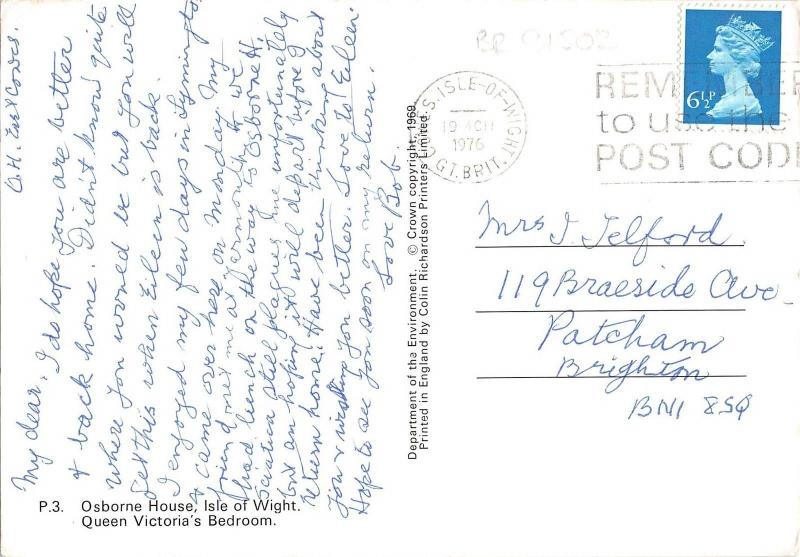 O.H. East Cowes.
My dear, I do hope you are better
& back home. Didn't know quite
where you would be but you will
get this when Eileen is back.
I enjoyed my few days in Lymington
& came over here on Monday. My
friend met me at Yarmouth & we
had lunch on the way to Osborne H.
Sciatica still plagues me unfortunately
but am hoping it will depart before I
return home. Have been thinking about
you & wishing you better. Love to Eileen.
Hope to see you soon on my return.
Love Bob.
P.3. Osborne House, Isle of Wight.
Queen Victoria's Bedroom.
Department of the Environment. © Crown copyright, 1969.
Printed in England by Colin Richardson Printers Limited.
BP 91502
6½P
ISLE-OF-WIGHT
19
1976
GT. BRIT.
REMEMBER
to use the
POST CODE
Mrs J. Telford.
119 Braeside Ave.
Patcham
Brighton
BN1 8SQ